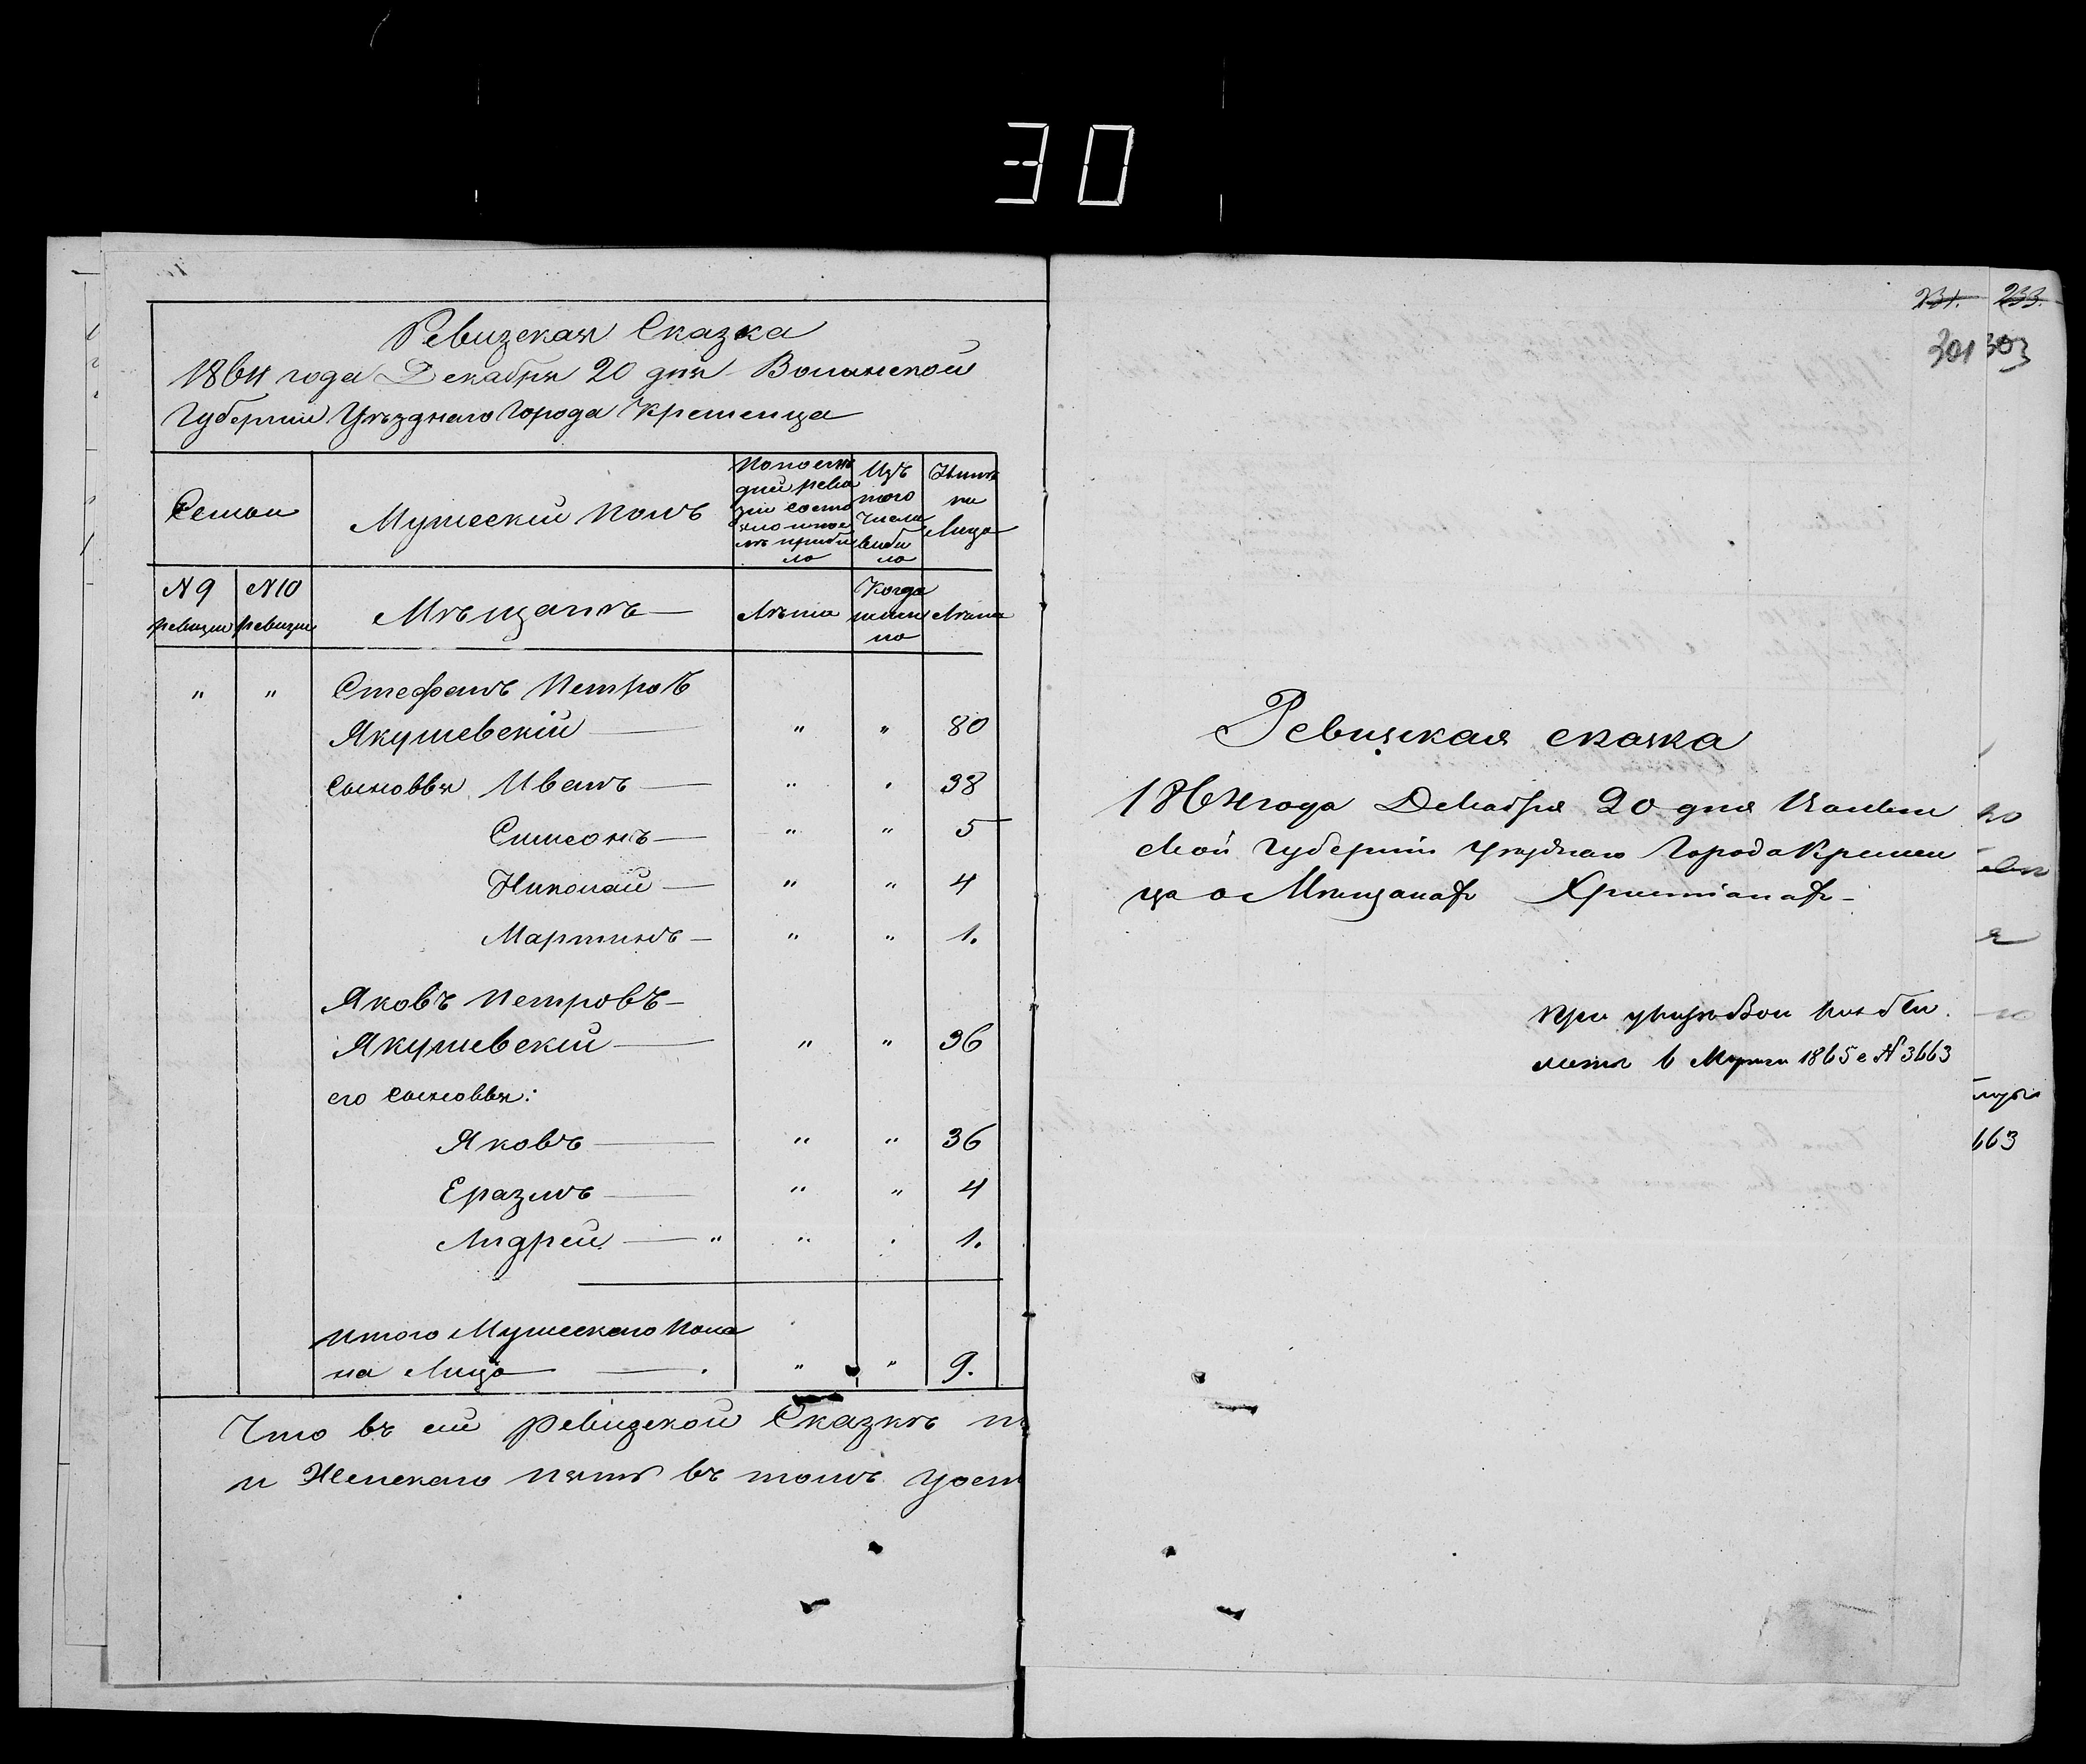 30
Ревизская Сказка
1864 года Декабря 20 дня Волынской
Губернии Уѣзднаго Города Кременца
Семьи
Мужескій полъ
По последней ревизіи состояло и после прибыло
Изъ того числа выбыло
Ныне на Лицо
N 9 ревизіи
N 10 ревизіи
Мѣщанъ
Лѣта
Когда именно
Лѣта
" " Стефанъ Петровъ
Якушевскій " " 80
Сыновья Иванъ " " 38
Симеонъ " " 5
Николай " " 4
Мартинъ " " 1.
Яковъ Петровъ
Якушевскій " " 36
его Сыновья:
Яковъ " " 36
Еразмъ " " 4
Андрей " " " 1.
Итого Мужескаго Пола
на Лицо " " 9.
Что въ сей ревизской Сказкѣ
и Женскаго пять въ томъ удост
231. 233.
301 303
Ревизская сказка
1864 года Декабря 20 дня Волын
ской Губерніи Уѣзднаго Города Кремен
ца о Мѣщанах Христіанах
при указѣ Вол
1865 с N 3663
663